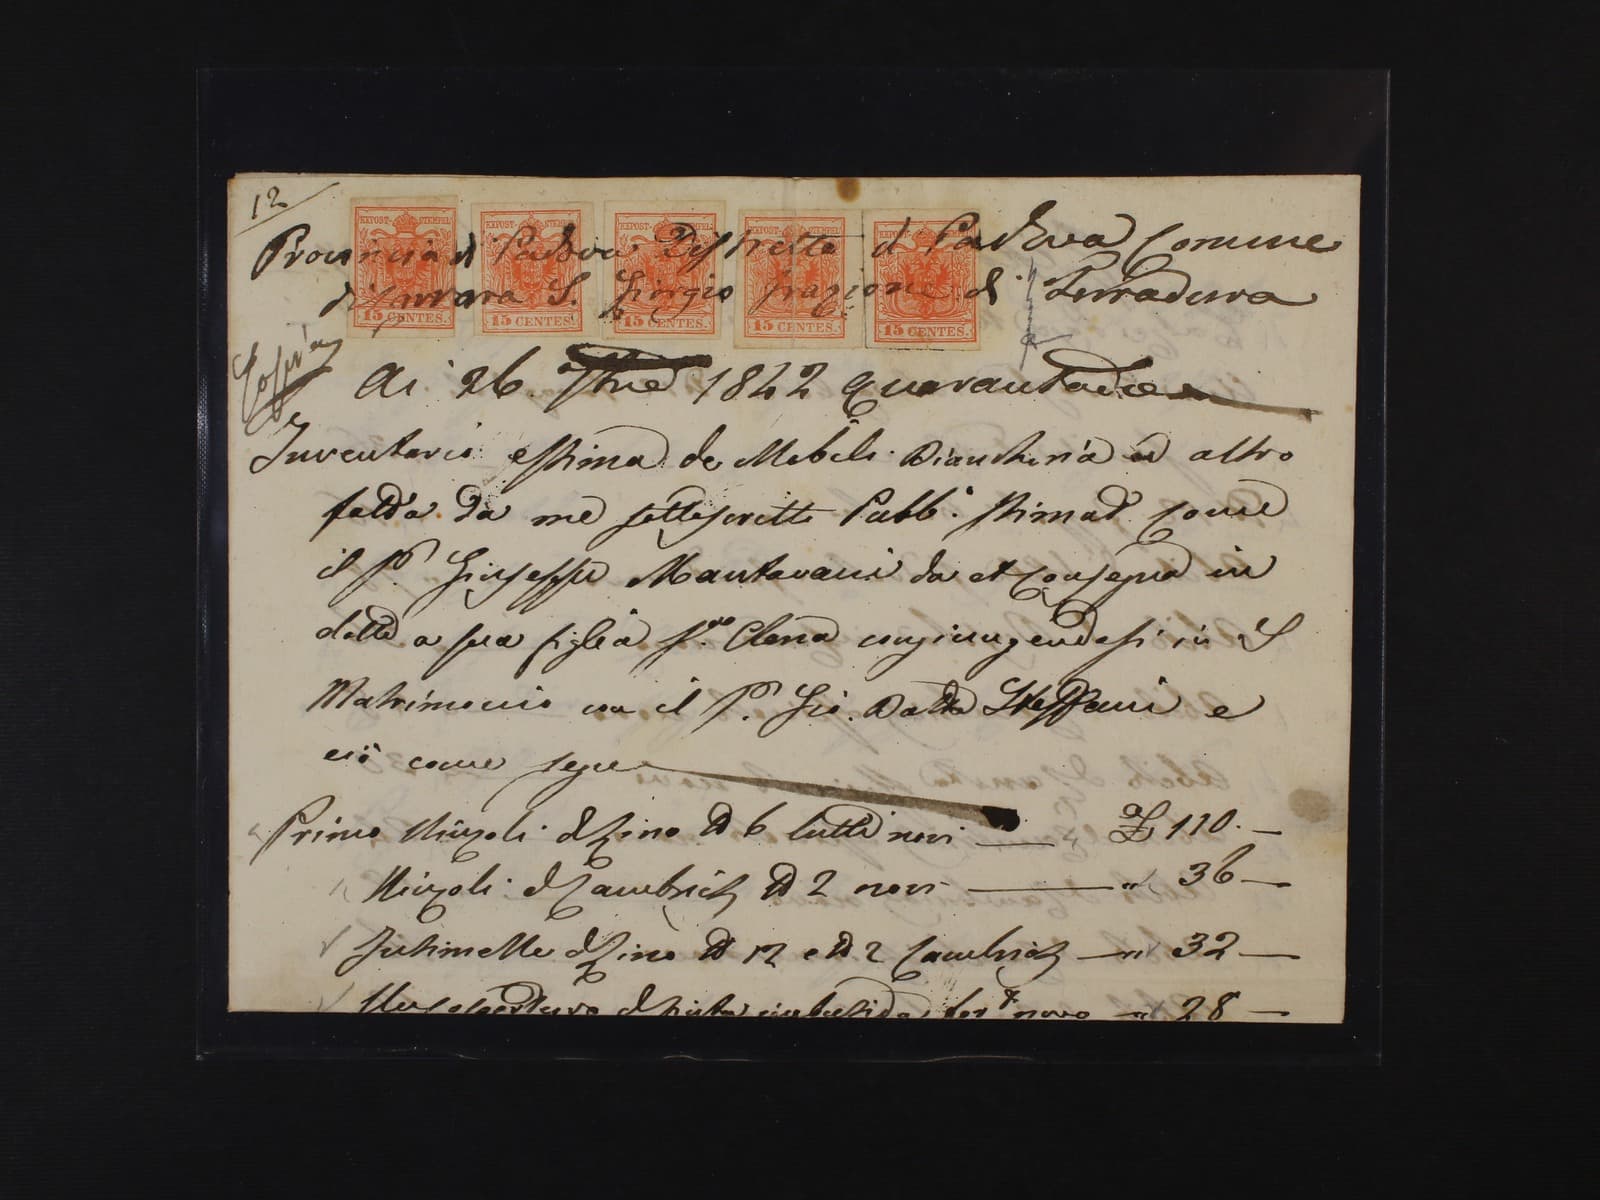 12
KKPOST-STEMPEL KKPOST-STEMPEL KKPOST-STEMPEL KKPOST-STEMPEL KKPOST-STEMPEL
Provincia di Padova Distretto di Padova Comune
di Carrara S. Giorgio frazione di Terradura
15 CENTES. 15 CENTES. 15 CENTES. 15 CENTES. 15 CENTES.
Ai 26 1842 quarantadue
Inventario e stima de Mobili Biancheria ed altro
fatta da me sottoscritto Pubb.o Stimad. come
il S.r Giuseppe Mantovani da et consegna in
dotte a sua figlia Elena congiungendosi in
Matrimonio con il S.r Gio. Batta Steffani e
ciò come segue
Primo Ninzoli di Lino N 6 tutti novi £ 110.—
Ninzoli di Cambrich N 2 novi — " 36—
Intimelle di Lino N 12 e N 2 Cambrich — " 32—
novo — " 28—